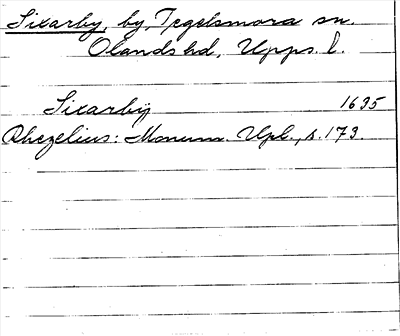 Sixarby, by, Tegelsmora sn.
Olands hd, Upps. l.
Sixarby 1635
Rhezelius: Monum. Upl., s. 173.